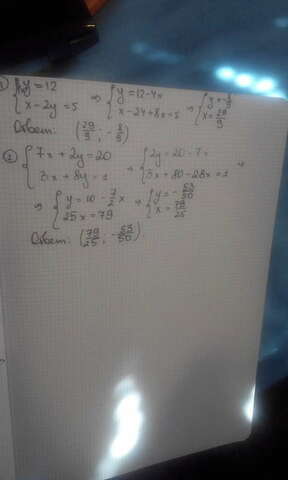 y = 12
x - 2y = 5 ⇒ { y = 12 - 4x
x - 24 + 8x = 5 ⇒ { y = -8/9
x = 29/9
Ответ: (29/9 ; -8/9)
2 { 7x + 2y = 20
3x + 8y = 1 ⇒ { 2y = 20 - 7x
3x + 80 - 28x = 1 ⇒
⇒ { y = 10 - 7/2 x
25x = 79 ⇒ { y = -53/50
x = 79/25
Ответ: (79/25 ; -53/50)